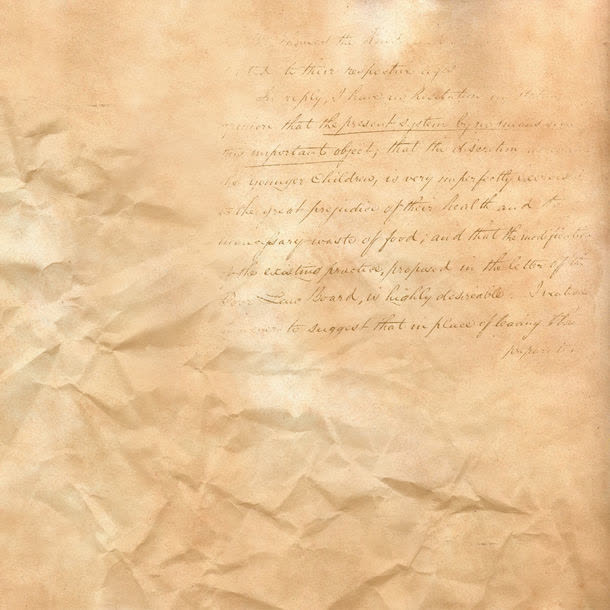 the
to their respective
In reply, I have no hesitation in
opinion that the present system by no means
this important object; that the discretion
the younger Children, is very imperfectly
to the great prejudice of their health and the
unnecessary waste of food; and that the modification
the existing practice, proposed in the letter of the
Poor Law Board, is highly desireable. I venture
to suggest that in place of leaving the